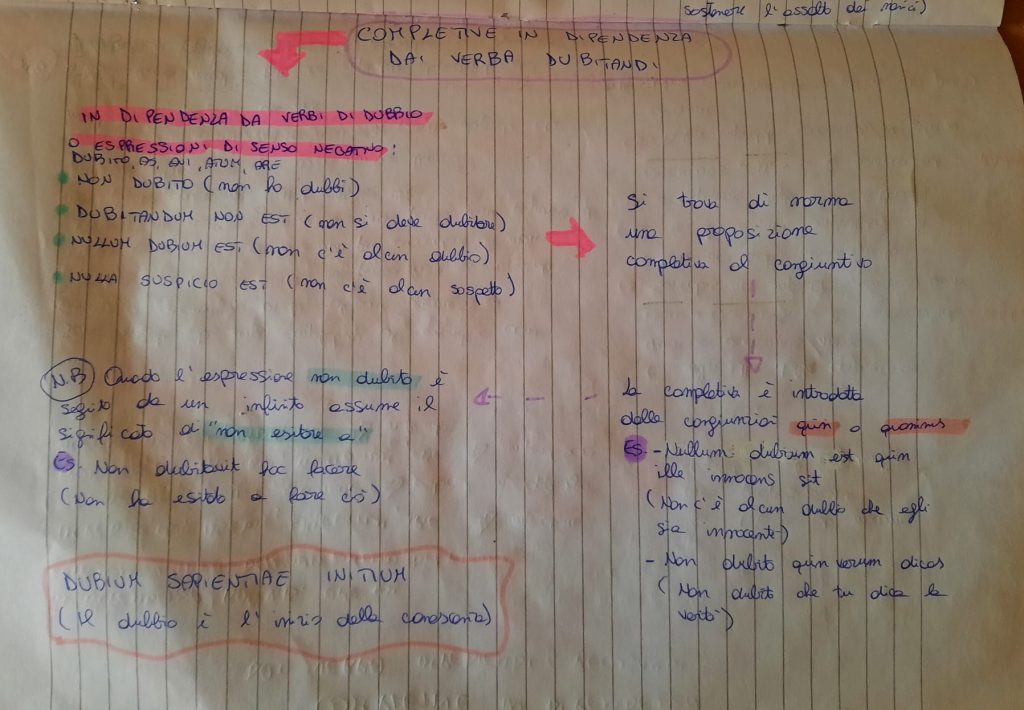 sostenere l'assalto dei nemici)
COMPLETIVE IN DIPENDENZA
DAI VERBA DUBITANDI
IN DIPENDENZA DA VERBI DI DUBBIO
O ESPRESSIONI DI SENSO NEGATIVO:
DUBITO, AS, AVI, ATUM, ARE
NON DUBITO (non ho dubbi)
DUBITANDUM NON EST (non si deve dubitare)
NULLUM DUBIUM EST (non c'è alcun dubbio)
NULLA SUSPICIO EST (non c'è alcun sospetto)
Si trova di norma
una proposizione
completiva al congiuntivo
La completiva è introdotta
dalle congiunzioni quin o quominus
ES. - Nullum dubium est quin
ille innocens sit
(Non c'è alcun dubbio che egli
sia innocente)
- Non dubito quin verum dicas
(Non dubito che tu dica la
verità)
N.B Quando l'espressione non dubito è
seguito da un infinito assume il
significato di "non esitare a"
ES. Non dubitavit hoc facere
(Non ha esitato a fare ciò)
DUBIUM SAPIENTIAE INITIUM
(Il dubbio è l'inizio della conoscenza)